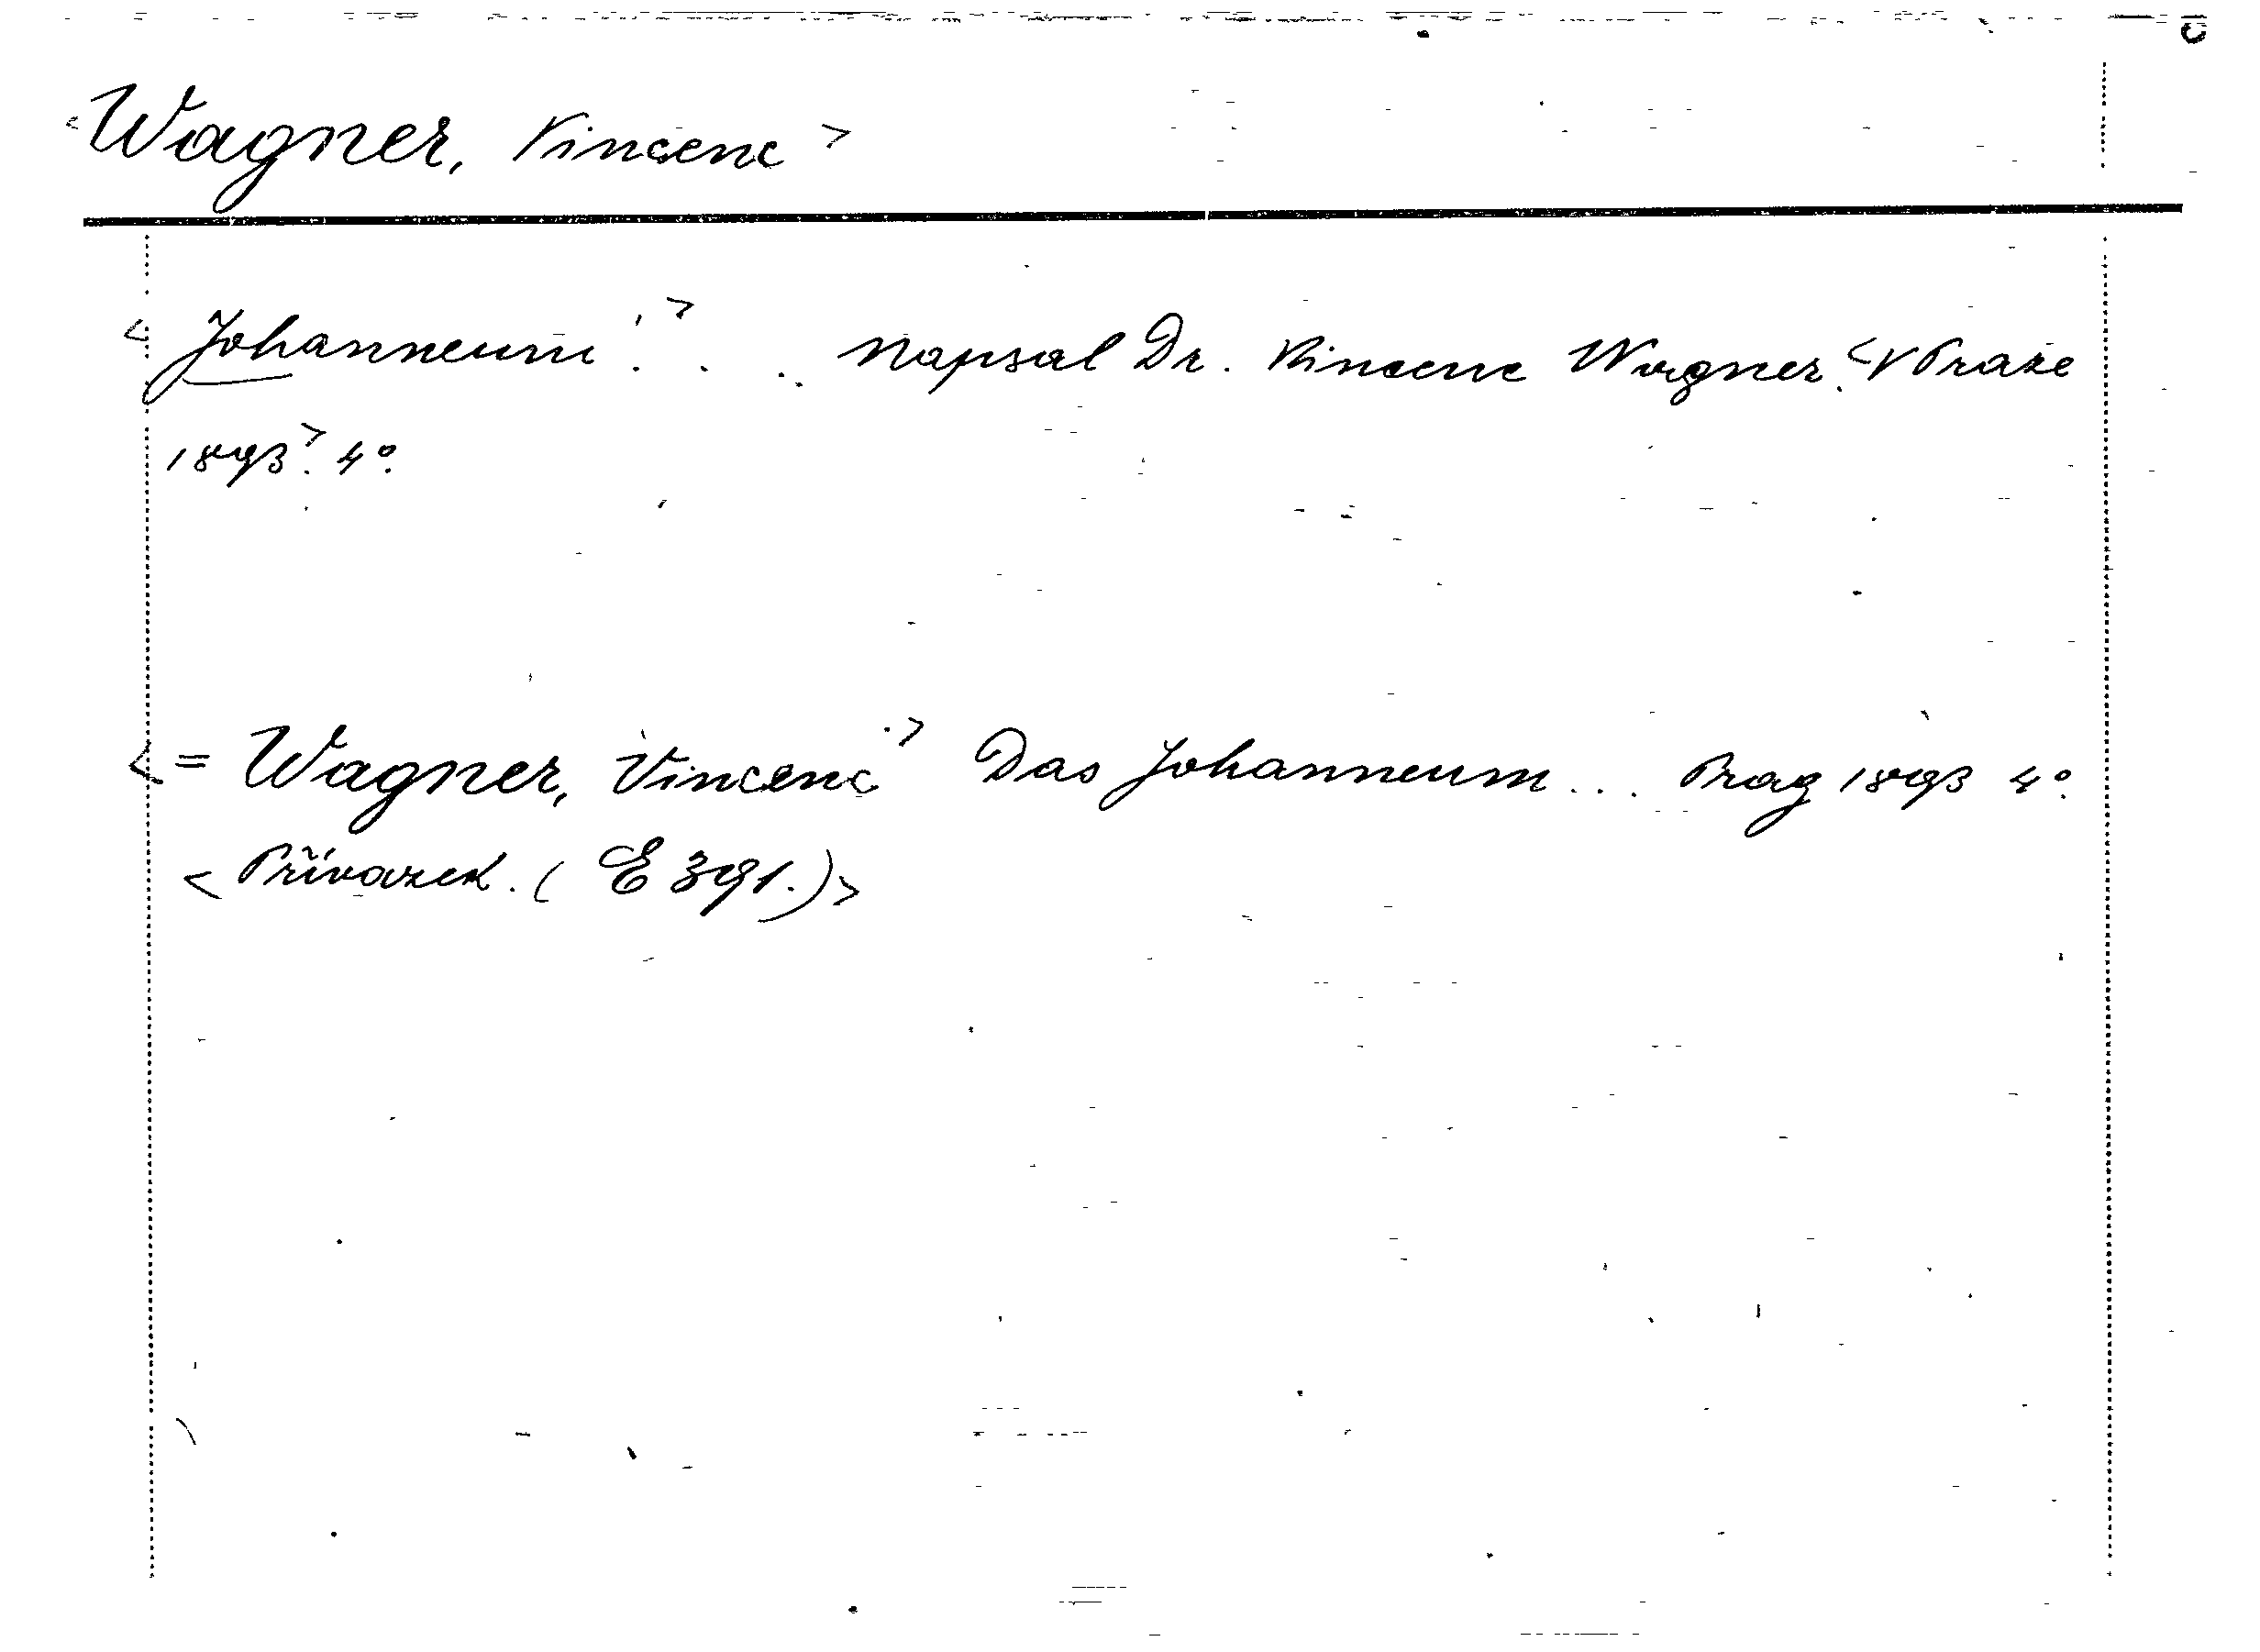 <Wagner, Vincenc>
<Johanneum.> . . . Napsal Dr. Vincenc Wagner. <V Praze
1893>. 4°.
<= Wagner, Vincenc.> Das Johanneum... Prag 1893 4°.
<Přívazek. (E 391.)>